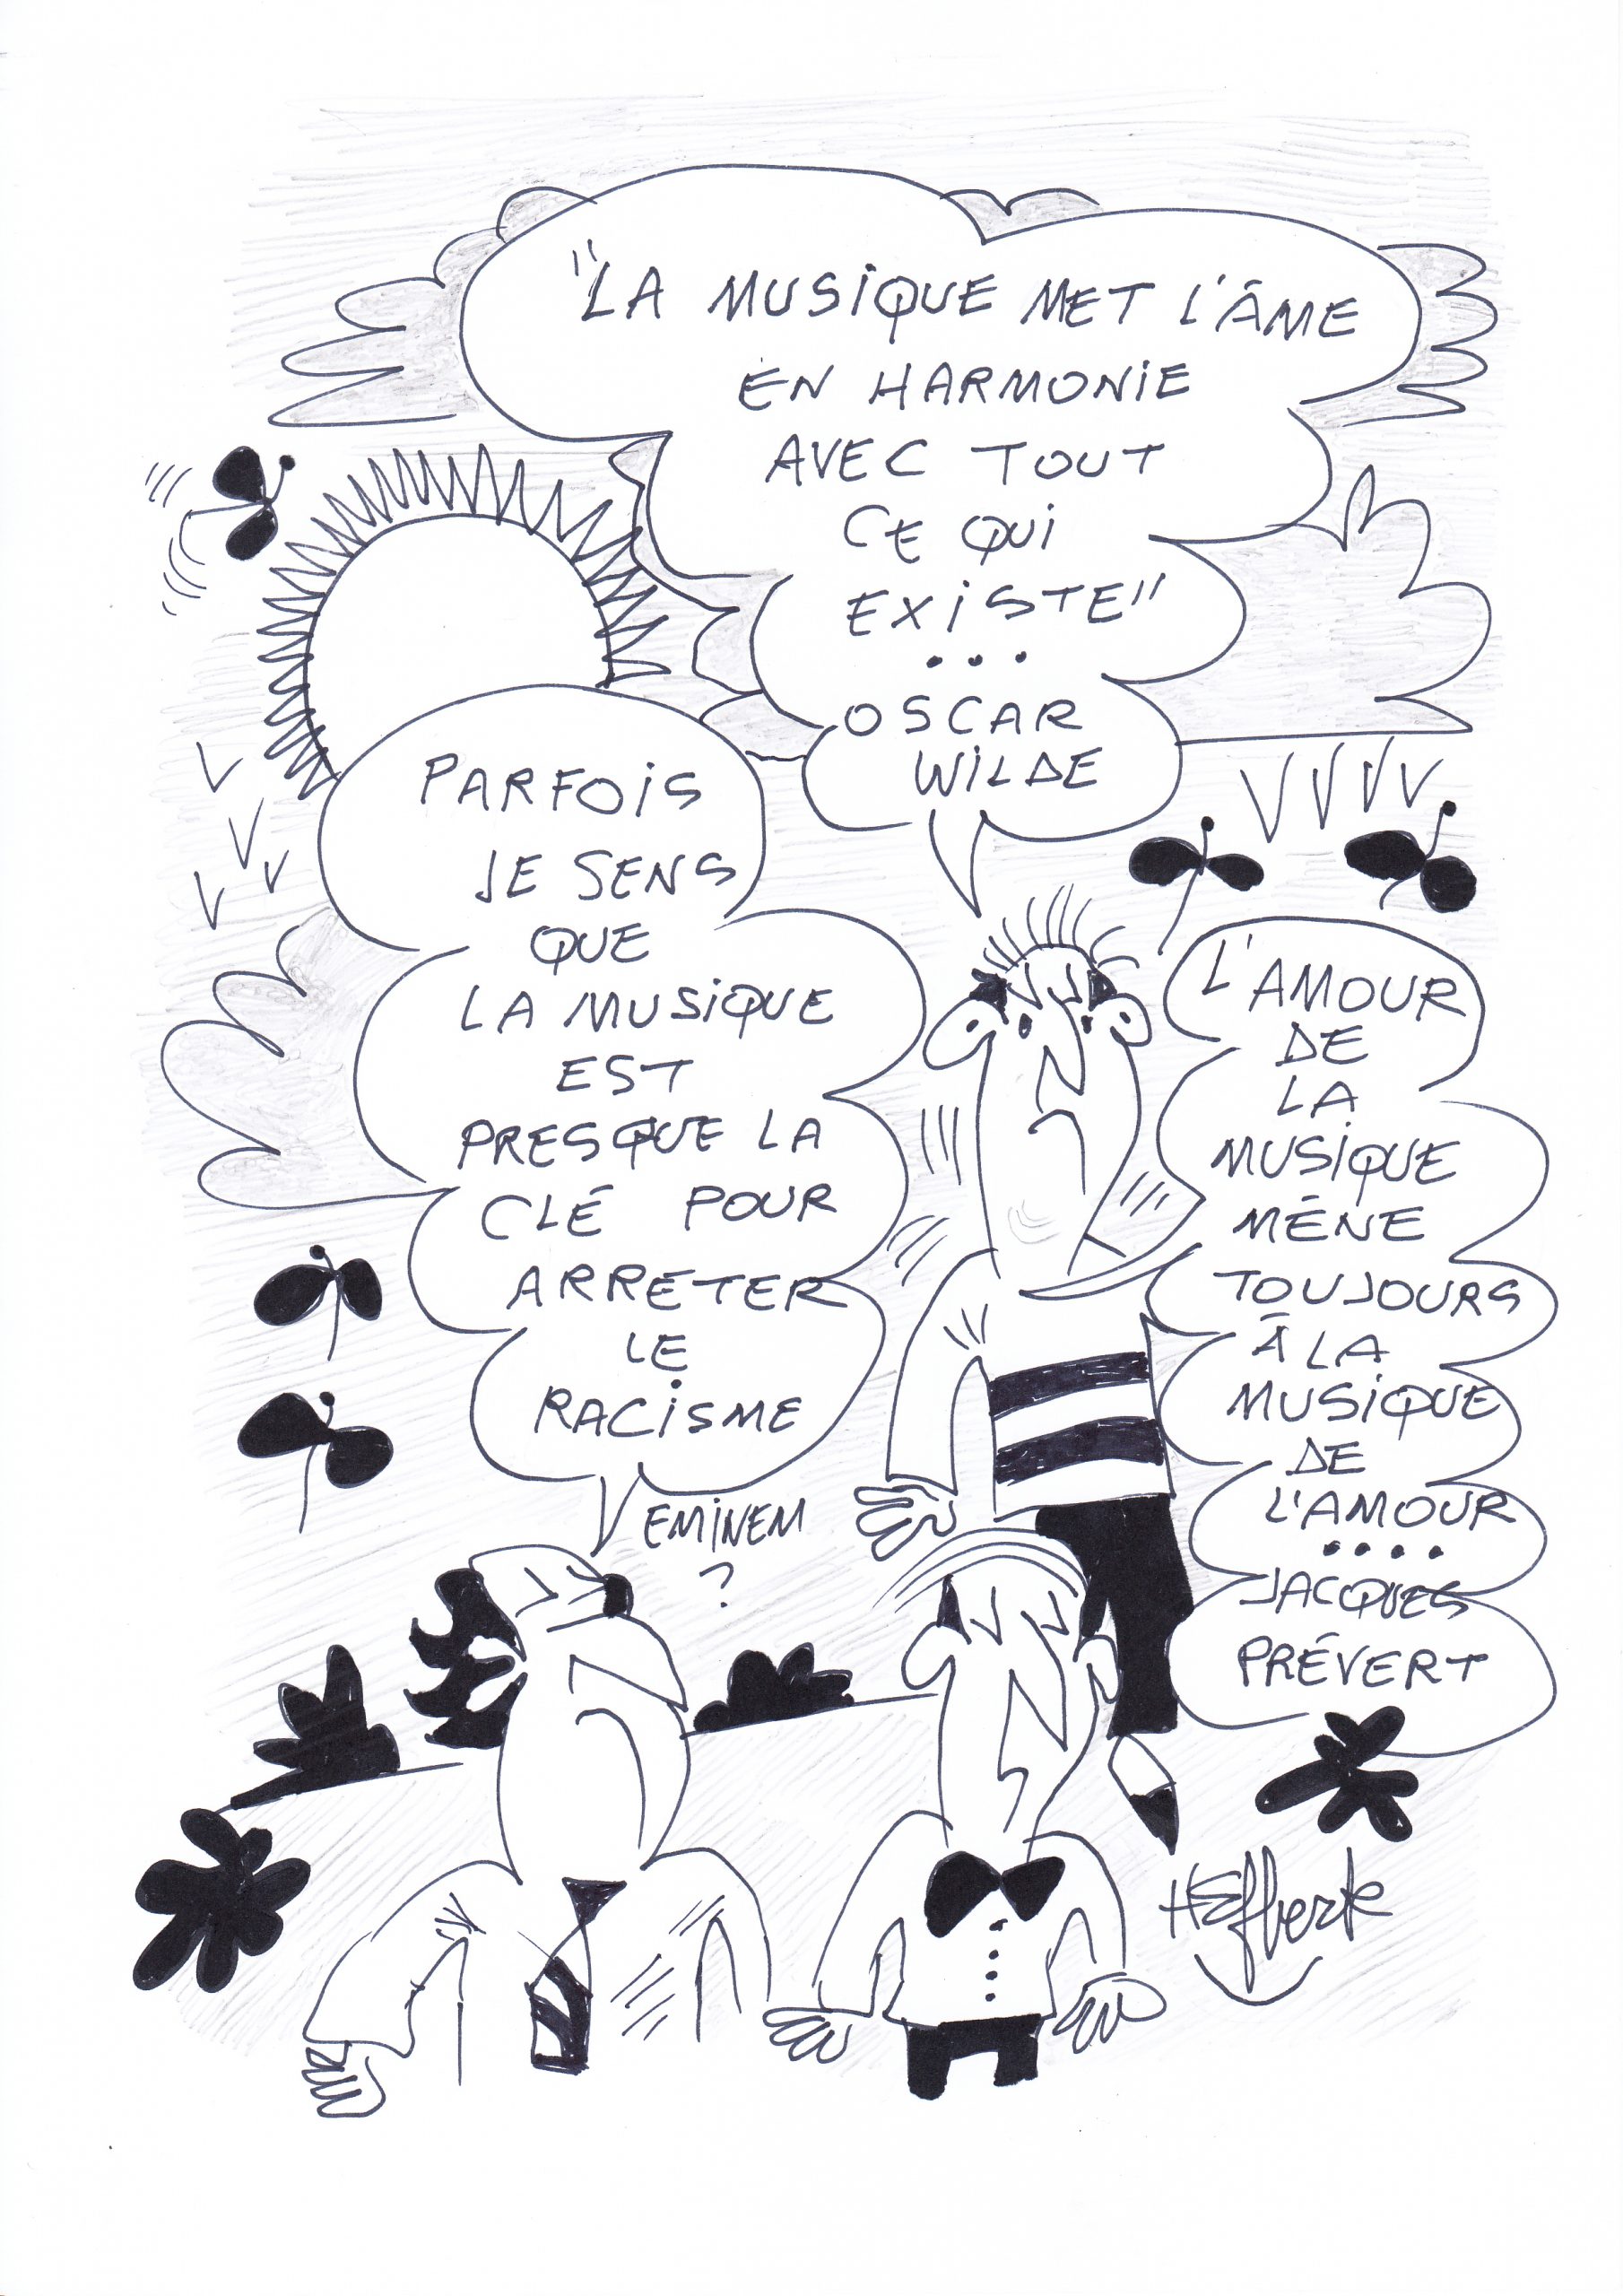 "LA MUSIQUE MET L'ÂME
EN HARMONIE
AVEC TOUT
CE QUI
EXISTE"
...
OSCAR
WILDE
PARFOIS
JE SENS
QUE
LA MUSIQUE
EST
PRESQUE LA
CLÉ POUR
ARRETER
LE
RACISME
EMINEM
?
L'AMOUR
DE
LA
MUSIQUE
MÈNE
TOUJOURS
À LA
MUSIQUE
DE
L'AMOUR
....
JACQUES
PRÉVERT